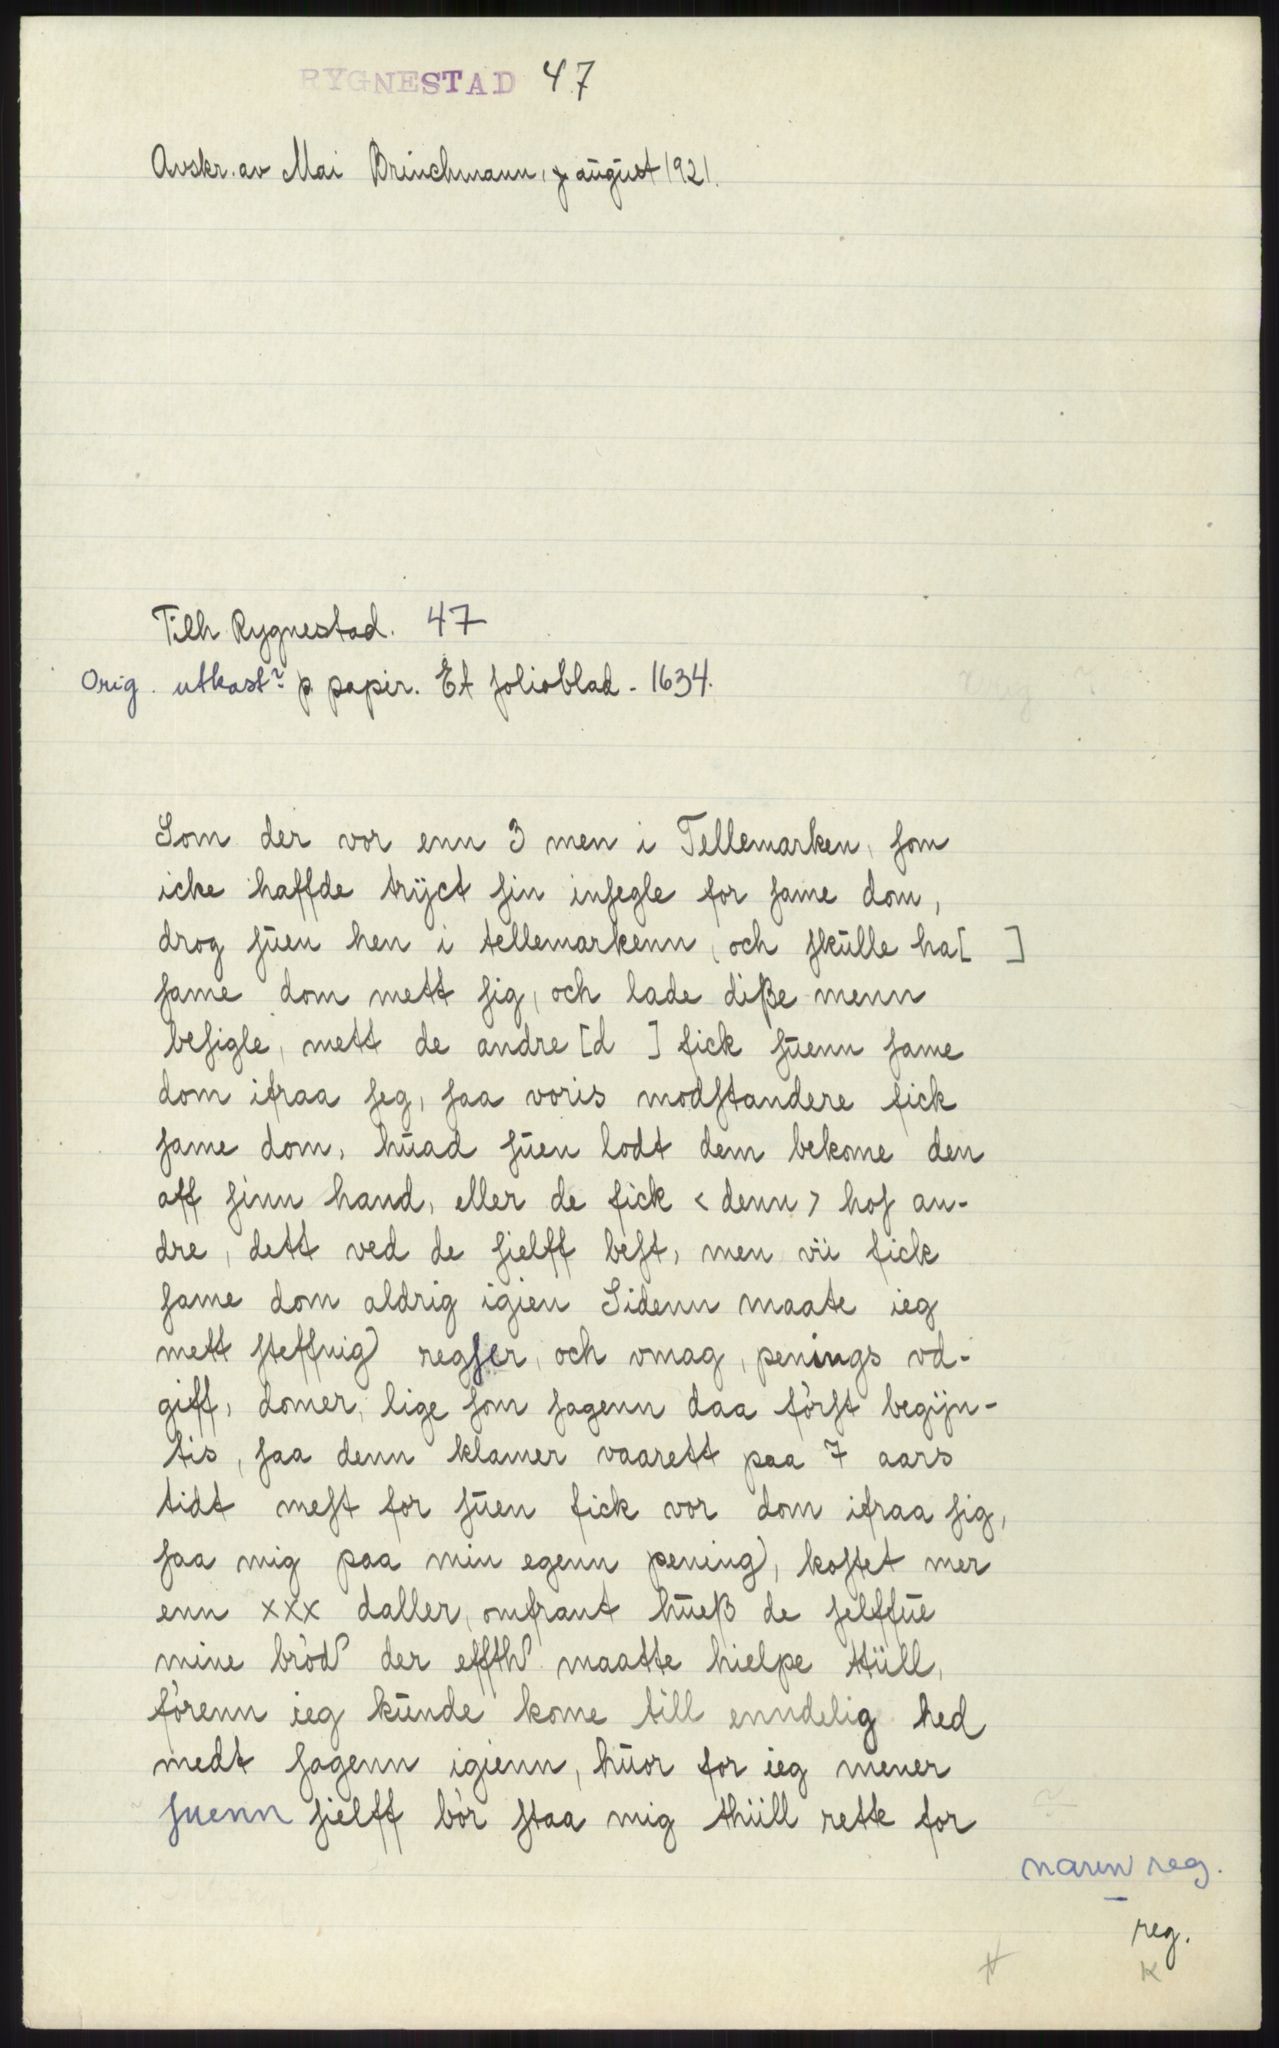 RYGNESTAD 47
Avskr. av Mai Brinchmann, august 1921.
Tilh. Rygnestad. 47
Orig. utkast? p papir. Et folioblad - 1634.
Som der vor enn 3 men i Tellemarken, som
icke haffde trÿct sin insegle for same dom,
drog suen hen i tellemarkenn, och skulle ha[ ]
same dom mett sig, och lade diße menn
besigle, mett de andre [d ] fick suenn same
dom ifraa seg, saa voris modstandere fick
same dom, huad suen lodt dem bekome den
aff sinn hand, eller de fick < denn > hos an-
dre, dett ved de sielff best, men vii fick
same dom aldrig igien Sidenn maate ieg
mett steffnig regser, och vmag, penings vd-
giff, domer, lige som sagenn daa först begÿn-
tis, saa denn klamer vaarett paa 7 aars
tidt mest for suen fick vor dom ifraa sig,
saa mig paa min egenn pening, kostet mer
enn xxx daller, omfrant hueß de selffue
mine bröd der effth maatte hielpe ttüll,
förenn ieg kunde kome till enndelig hed
medt sagenn igienn, huor for ieg mener
suenn sielff bör staa mig thüll rette for
navn reg.
reg.
K